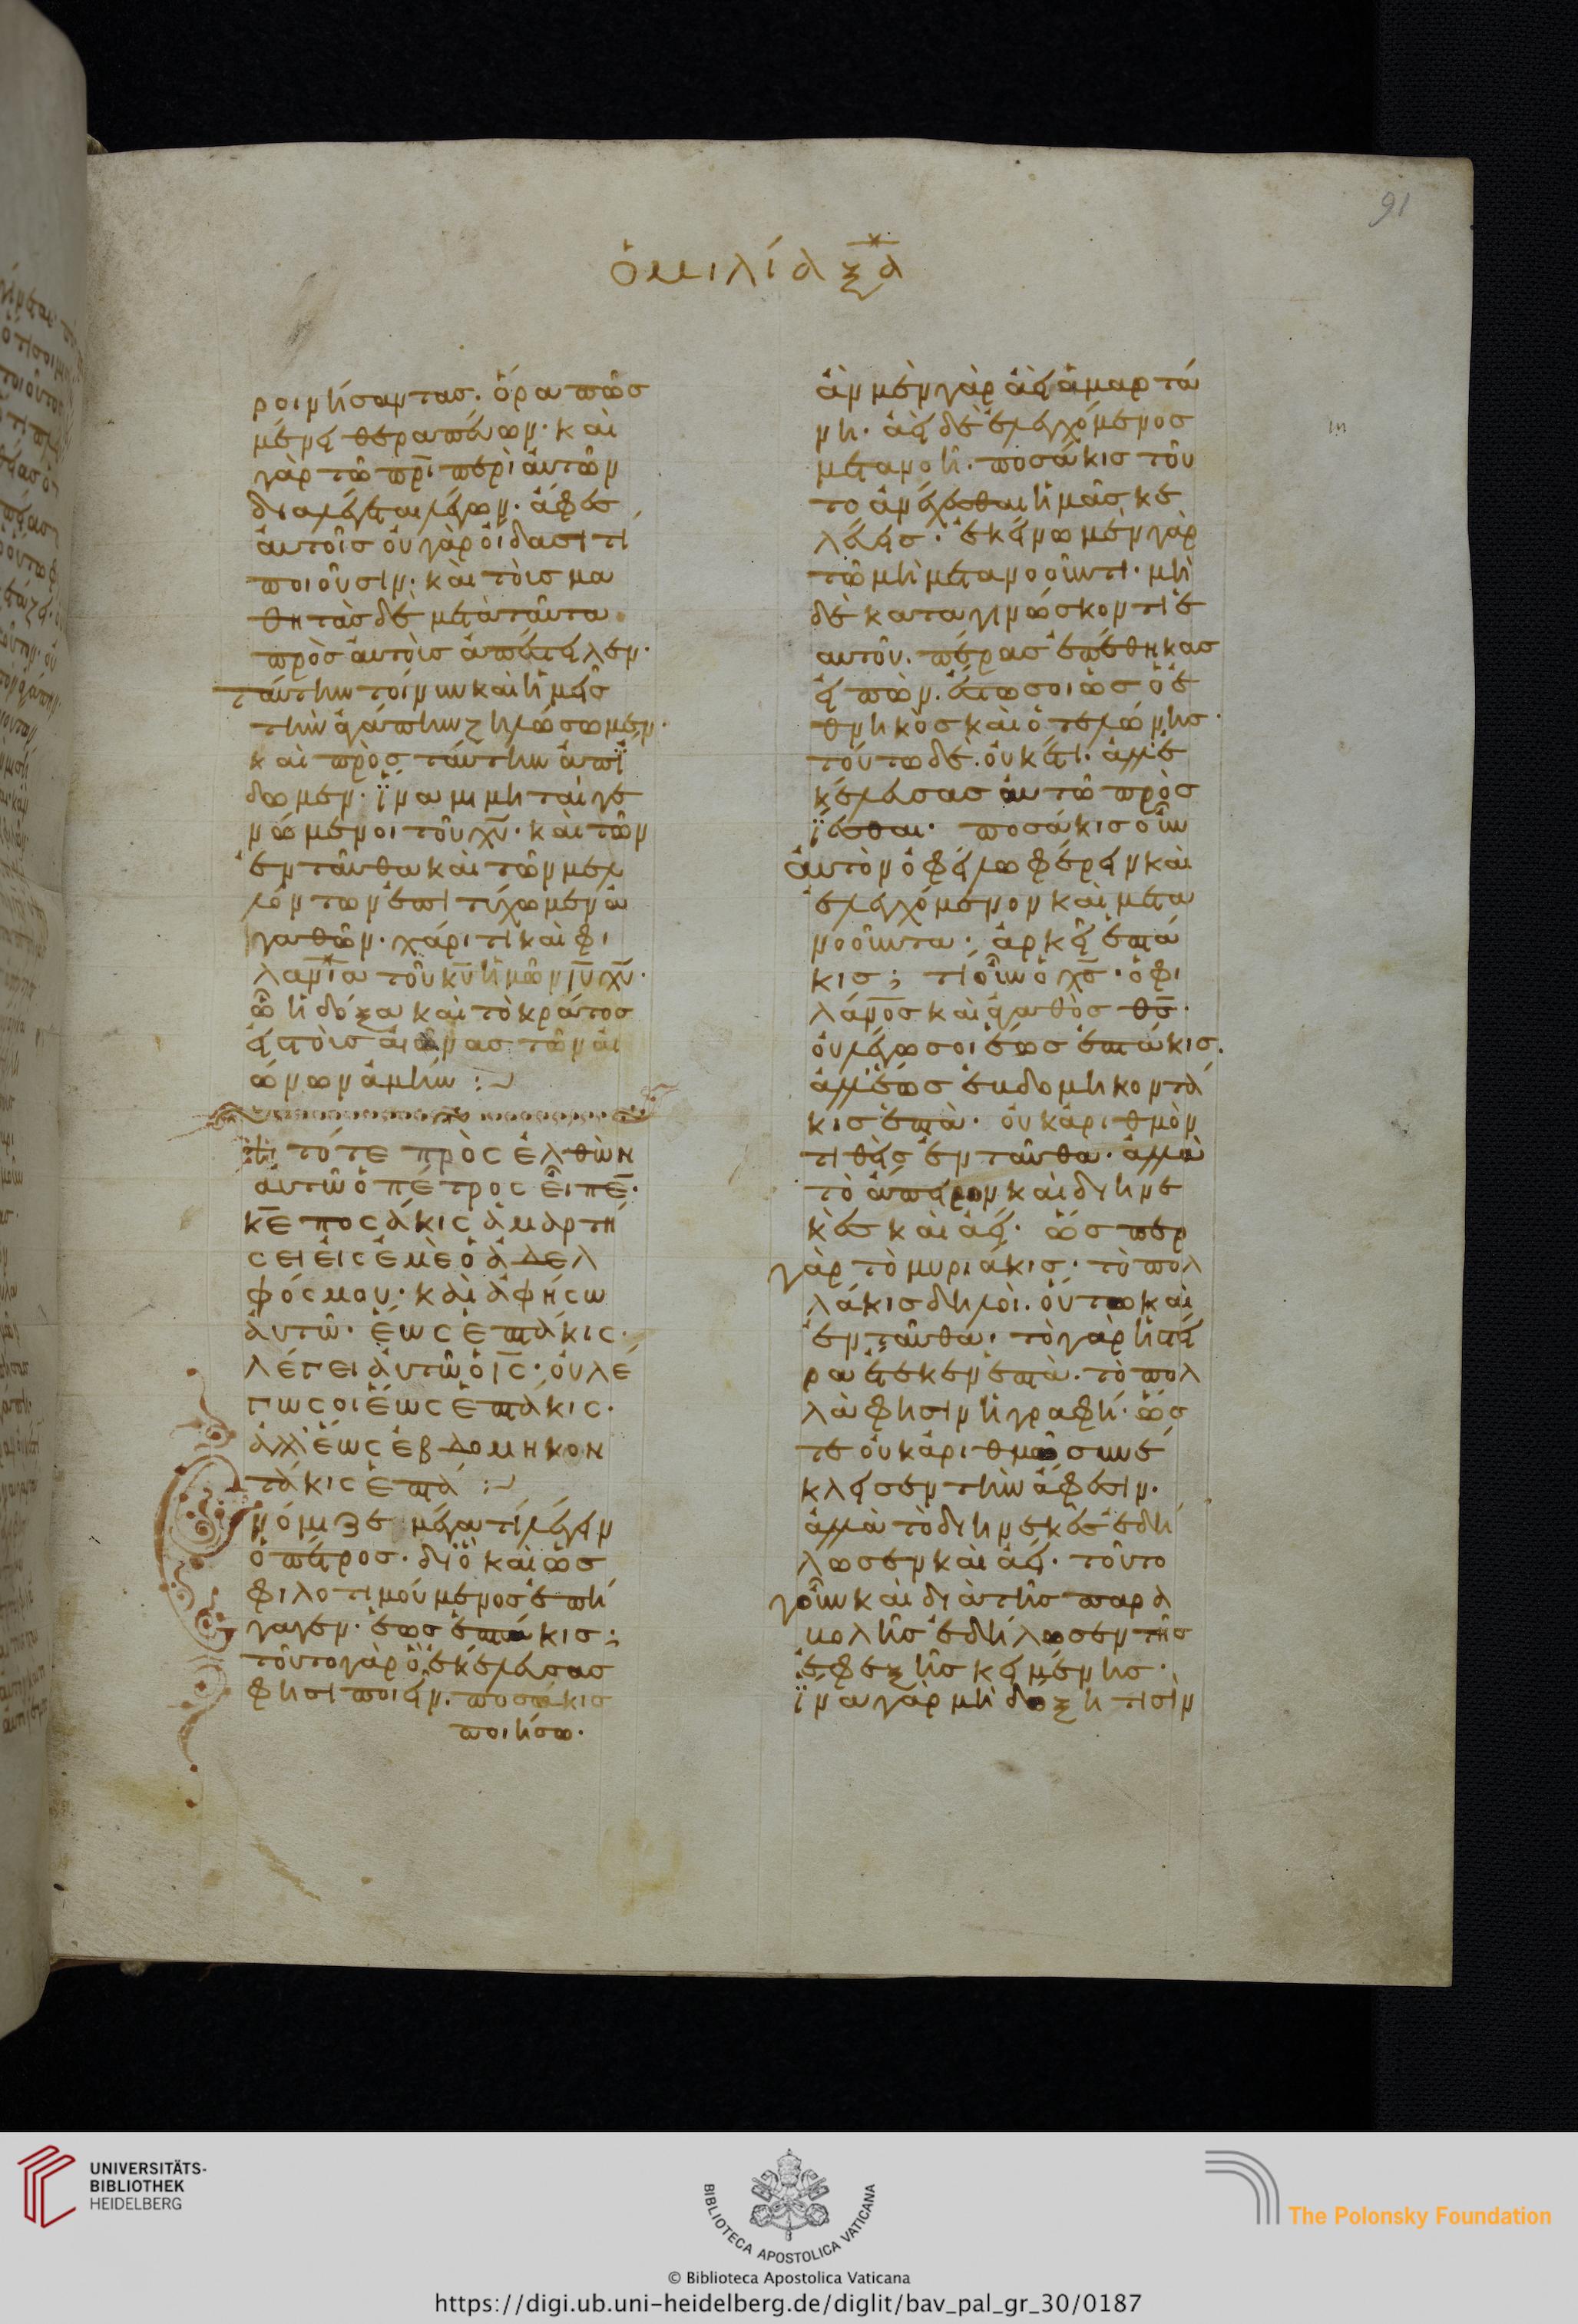 91
ὁμιλία ξα
ροινήσαντας· ὅρα πῶς
μένει θεραπεύων· καὶ
γὰρ τῶ πρι περὶ αὐτῶν
διαλέγεται λέγων· ἄφες
αὐτοῖς οὐ γὰρ οἴδασι τί
ποιοῦσιν· καὶ τοὺς μα
θητὰς δὲ μετὰ ταῦτα
πρὸς αὐτοὺς ἀπέστειλεν·
ταύτην τοίνυν καὶ ἡμεῖς
τὴν ἀγάπην ζηλώσωμεν·
καὶ πρὸς ταύτην ἀπΐ
δωμεν· ἵνα μιμηταὶ γε
νώμενοι τοῦ χυ· καὶ τῶν
ἐνταῦθα καὶ τῶν μελ
λόντων ἐπιτύχωμεν ἀ
γαθῶν· χάριτι καὶ φι
λανια τοῦ κυ ἡμῶν ιυ χυ·
ὧ ἡ δόξα καὶ τὸ κράτος
εἰς τοὺς αἰῶνας τῶν αἰ
ώνων ἀμήν :~
τότε προσελθὼν
αὐτῶ ὁ πέτρος εἶπε·
κε ποσάκις ἁμαρτή
σει εἰς ἐμὲ ὁ ἀδελ
φός μου· καὶ ἀφήσω
αὐτῶ· ἕως ἑπτάκις·
λέγει αὐτῶ ὁ ις· οὐ λέ
γω σοι ἕως ἑπτάκις·
ἀλλ' ἕως ἑβδομηκον
τάκις ἑπτά :~
Ἐνόμιζε μέγα τί λέγειν
ὁ πέτρος· διὸ καὶ ὡς
φιλοτιμούμενος ἐπή
γαγεν· ἕως ἑπτάκις;
τοῦτο γὰρ ὃ ἐκέλευσας
φησὶ ποιεῖν· ποσάκις
ποιήσω·
ἂν μὲν γὰρ ἀεὶ ἁμαρτά
νη· ἀεὶ δὲ ἐλεγχόμενος
μετανοῆ· ποσάκις τού
του ἀνέχεσθαι ἡμᾶς κε
λεύεις· ἐκείνω μὲν γὰρ
τῶ μὴ μετανοοῦντι· μὴ
δὲ καταγινώσκοντι ἑ
αυτοῦ· πέρας ἐπέθηκας
εἰπών· ἔστω σοι ὡς ὁ ἐ
θνηκὸς καὶ ὁ τελώνης·
τούτω δὲ· οὐκέτι· ἀλλ' ἐ
κέλευσας αὐτῶ προς
ΐεσθαι· ποσάκις οὖν
αὐτὸν ὀφείλω φέρειν καὶ
ἐλεγχόμενον καὶ μετα
νοοῦντα· ἀρκεῖ ἑπτά
κις; τί οὖν ὁ χς· ὁ φι
λάνος καὶ ἀγαθὸς θς·
οὐ λέγω σοι ἕως ἑπτάκις·
ἀλλ' ἕως ἑβδομηκοντά
κις ἑπτὰ· οὐκ ἀριθμὸν
τιθεὶς ἐνταῦθα· ἀλλὰ
τὸ ἄπειρον καὶ διηνε
κὲς καὶ ἀεί· ὥσπερ
γὰρ τὸ μυριάκις· τὸ πολ
λάκις δηλοῖ· οὕτω καὶ
ἐνταῦθα· τὸ γὰρ ἡ στεῖ
ρα ἔτεκεν ἑπτὰ· τὸ πολ
λὰ φησὶν ἡ γραφή· ὥς
τε οὐκ ἀριθμῶ συνέ
κλεισεν τὴν ἄφεσιν·
ἀλλὰ τὸ διηνεκὲς ἐδή
λωσεν καὶ ἀεί· τοῦτο
γοῦν καὶ διὰ τῆς παρα
βολῆς ἐδήλωσεν τῆς
ἐφεξῆς κειμένης·
ἵνα γὰρ μὴ δόξη τισὶν
UNIVERSITÄTS-
BIBLIOTHEK
HEIDELBERG
BIBLIOTECA APOSTOLICA VATICANA
The Polonsky Foundation
© Biblioteca Apostolica Vaticana
https://digi.ub.uni-heidelberg.de/diglit/bav_pal_gr_30/0187